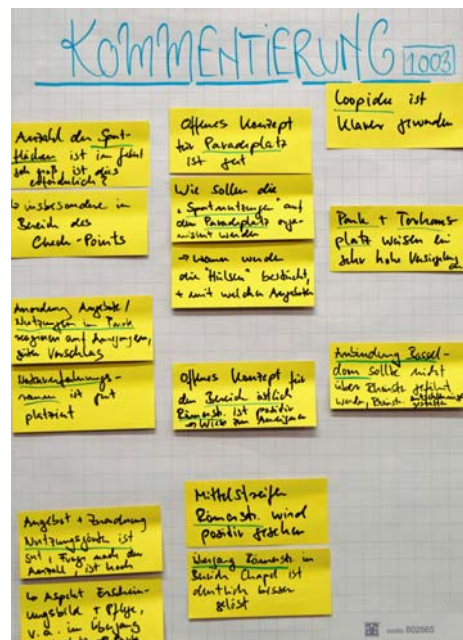 KOMMENTIERUNG 1003
Anzahl der Sport-
flächen ist im Gebiet
sehr groß ist das
erforderlich?
↳ insbesondere im
Bereich des
Check-Points
Anordnung Angebote/
Nutzungen im Park
reagieren auf
guten Vorschlag
Naturerfahrungs-
raum ist gut
platziert
Angebot + Zuordnung
Nutzungsgärten ist
gut, Frage nach der
Anzahl, ist hoch
↳ Aspekt Erschein-
ungsbild + Pflege,
v.a. im Übergang
Offenes Konzept
für Paradeplatz
ist gut
Wie sollen die
"Sportnutzungen" auf
dem Paradeplatz orga-
nisiert werden
→ wann werden
die "Hülsen" bestückt,
+ mit welchen Angeboten
Offenes Konzept für
den Bereich östlich
Römerstr. ist positiv
→ Wiese zum
Mittelstreifen
Römerstr. wird
positiv gesehen
Übergang Römerstr. im
Bereich Chapel ist
deutlich besser
gelöst
Loopidee ist
klarer geworden
Park + Torhaus-
platz weisen ein
sehr hohe Versiegelung
Anbindung
dom sollte nicht
über Rheinstr. geführt
werden, Rheinstr.